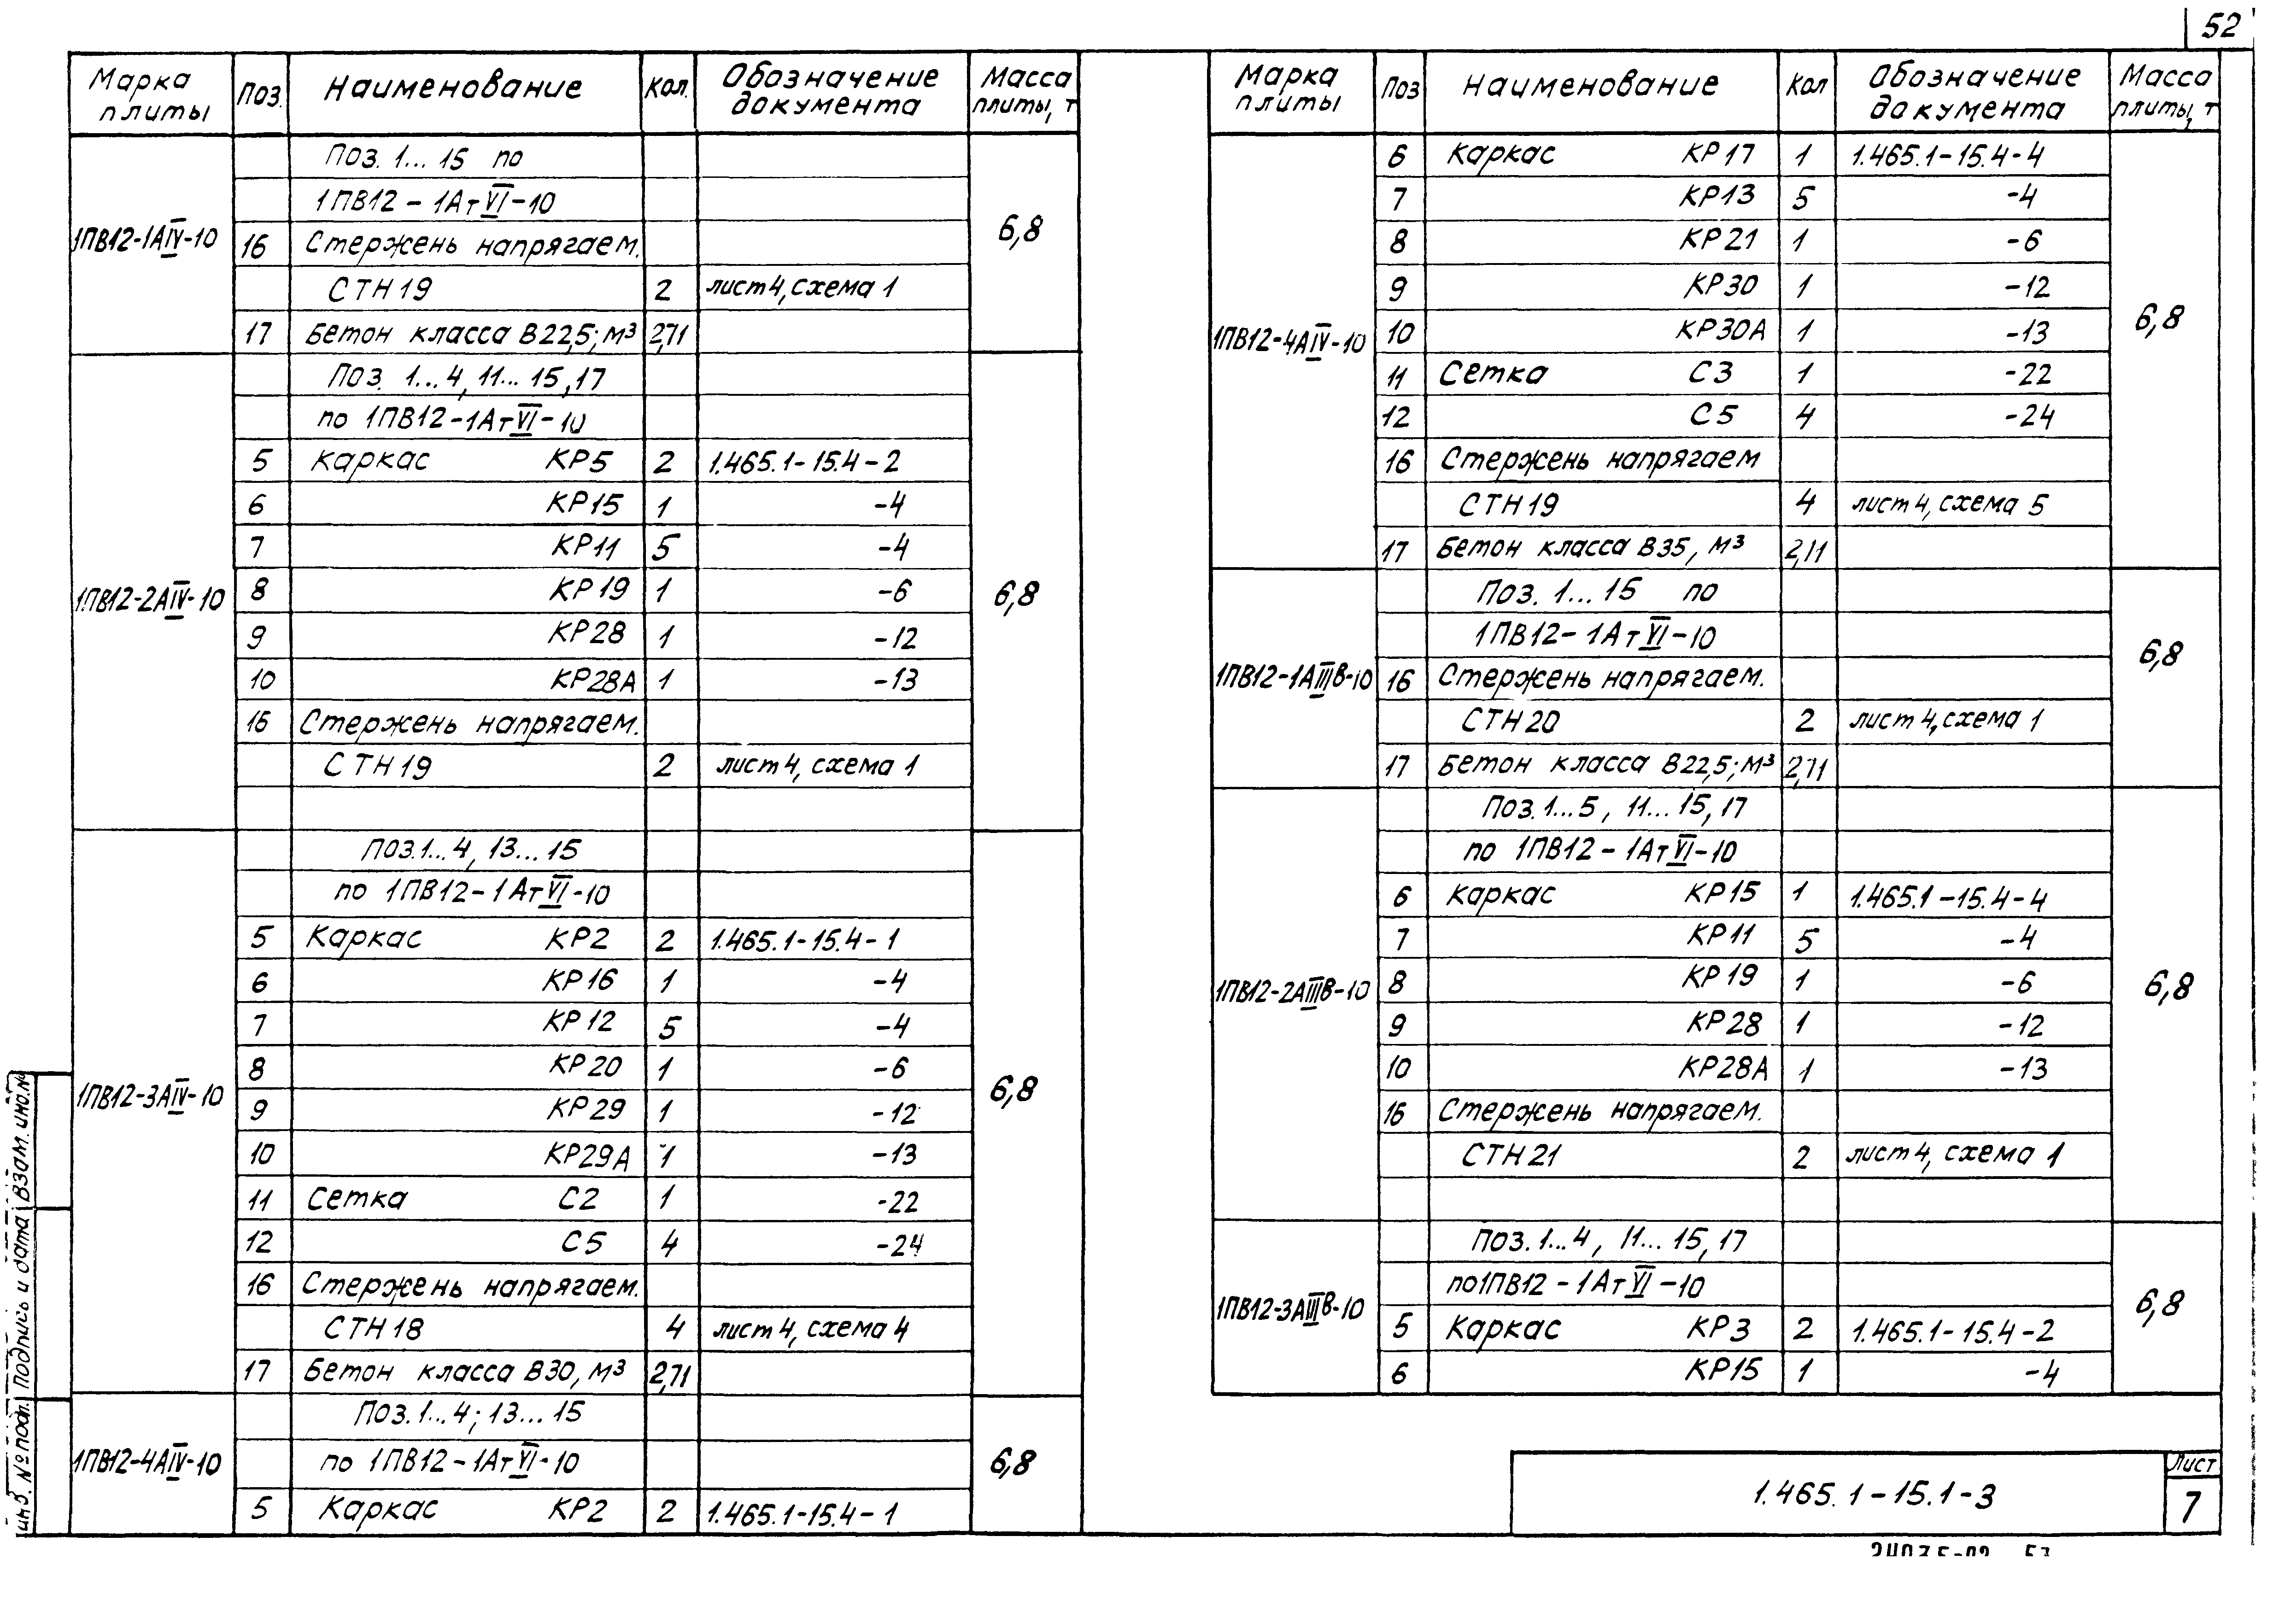 52
Марка плиты Поз. Наименование Кол. Обозначение документа Масса плиты, т
Поз. 1... 15 по
1ПВ12-1АтVI-10
1ПВ12-1АIV-10 6,8
16 Стержень напрягаем.
СТН19 2 лист 4, схема 1
17 Бетон класса В22,5; м³ 2,71
Поз. 1...4, 11...15,17
по 1ПВ12-1АтVI-10
5 Каркас КР5 2 1.465.1-15.4-2
6 КР15 1 -4
7 КР11 5 -4
1ПВ12-2АIV-10 8 КР19 1 -6 6,8
9 КР28 1 -12
10 КР28А 1 -13
16 Стержень напрягаем.
СТН19 2 лист 4, схема 1
Поз.1...4, 13...15
по 1ПВ12-1АтVI-10
5 Каркас КР2 2 1.465.1-15.4-1
6 КР16 1 -4
7 КР12 5 -4
8 КР20 1 -6
1ПВ12-3АIV-10 9 КР29 1 -12 6,8
10 КР29А 1 -13
11 Сетка С2 1 -22
12 С5 4 -24
16 Стержень напрягаем.
СТН18 4 лист 4, схема 4
17 Бетон класса В30, м³ 2,71
Поз.1...4; 13...15
1ПВ12-4АIV-10 по 1ПВ12-1АтVI-10 6,8
5 Каркас КР2 2 1.465.1-15.4-1
Марка плиты Поз Наименование Кол Обозначение документа Масса плиты, т
6 Каркас КР17 1 1.465.1-15.4-4
7 КР13 5 -4
8 КР21 1 -6
9 КР30 1 -12
1ПВ12-4АIV-10 10 КР30А 1 -13 6,8
11 Сетка С3 1 -22
12 С5 4 -24
16 Стержень напрягаем
СТН19 4 лист 4, схема 5
17 Бетон класса В35, м³ 2,71
Поз. 1...15 по
1ПВ12-1АтVI-10
1ПВ12-1АIIIВ-10 16 Стержень напрягаем. 6,8
СТН20 2 лист 4, схема 1
17 Бетон класса В22,5; м³ 2,71
Поз.1...5, 11...15,17
по 1ПВ12-1АтVI-10
6 Каркас КР15 1 1.465.1-15.4-4
7 КР11 5 -4
1ПВ12-2АIIIВ-10 8 КР19 1 -6 6,8
9 КР28 1 -12
10 КР28А 1 -13
16 Стержень напрягаем.
СТН21 2 лист 4, схема 1
Поз.1...4, 11...15,17
по 1ПВ12-1АтVI-10
1ПВ12-3АIIIВ-10 5 Каркас КР3 2 1.465.1-15.4-2 6,8
6 КР15 1 -4
1.465.1-15.1-3
Лист
7
Взам. инв.№
Подпись и дата
Инв. № подл.